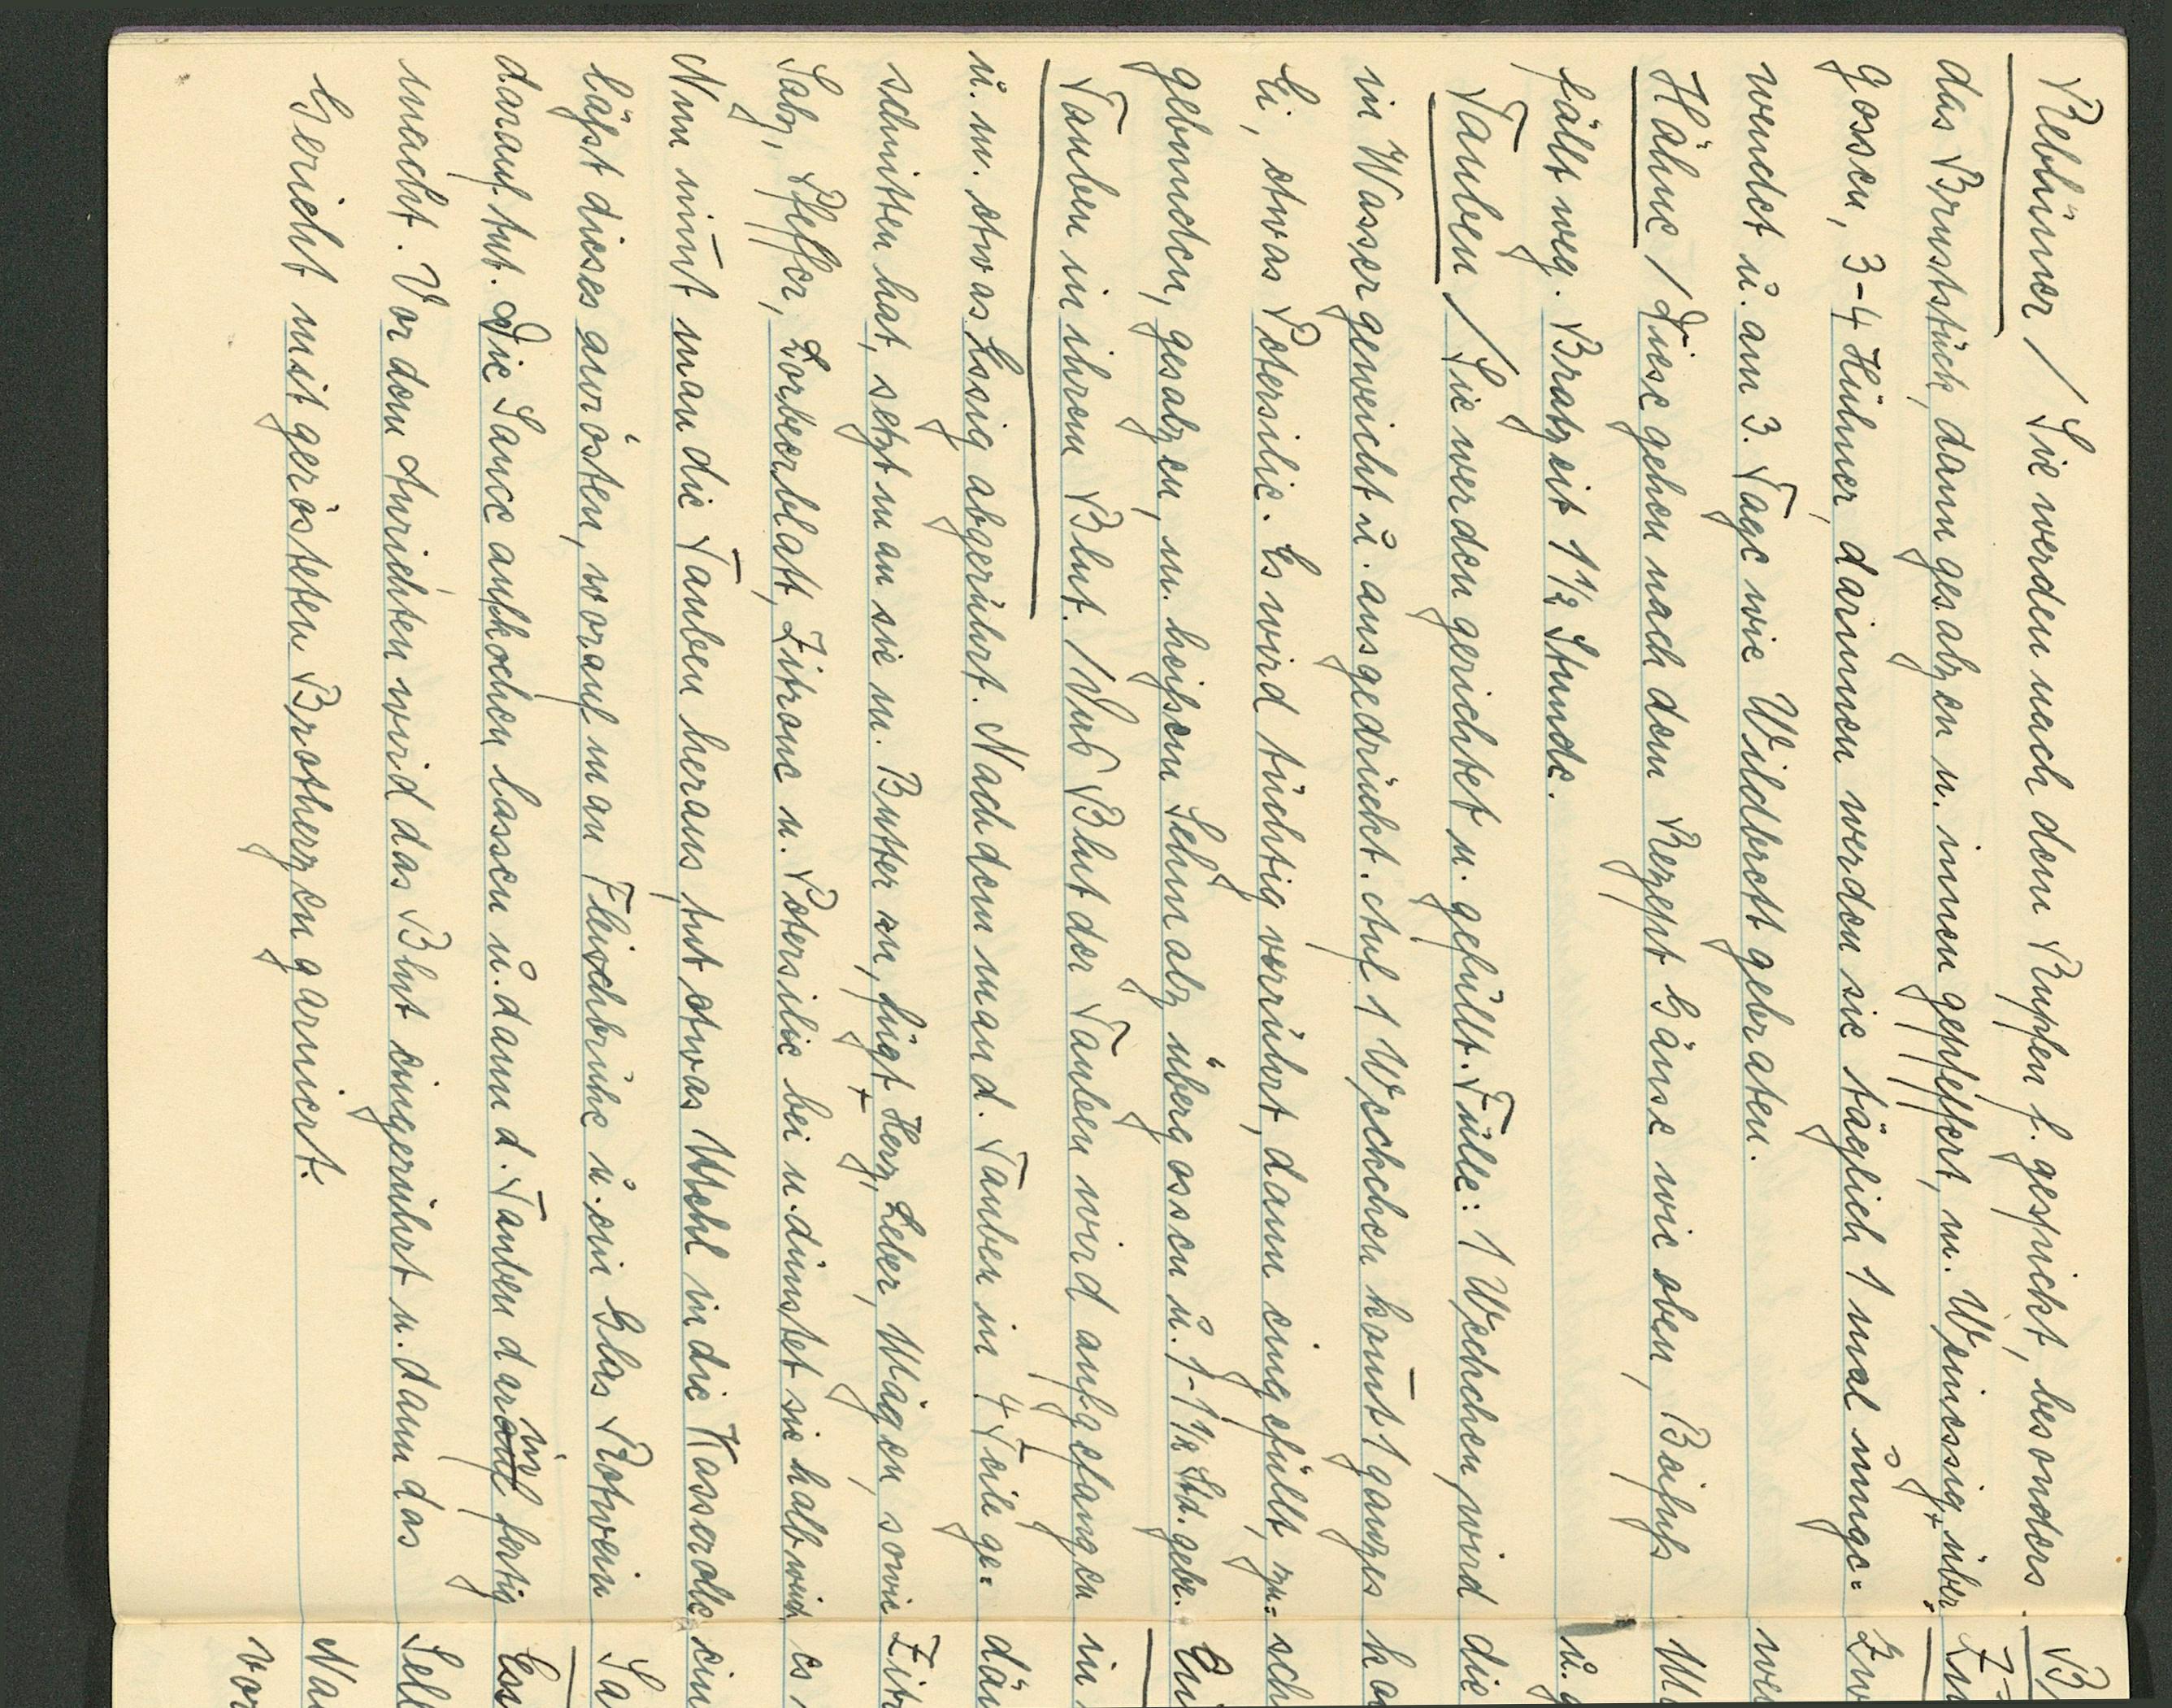 Rebhüner / Sie werden nach dem Rupfen f. gespickt, besonders
das Bruststück, dann gesalzen u. innen gepfeffert, m. Weinessig über-
gossen, 3-4 Hühner, darinnen werden sie täglich 1 mal umge-
wendet u. am 3. Tage wie Wildbrett gebraten.
Hähne / Diese gehen nach dem Rezept Gänse wie oben, Beifuß
fällt weg. Bratzeit 1 1/2 Stunde.
Tauben / Sie werden gerichtet u. gefüllt. Fülle: 1 Weckchen, wird
in Wasser geweicht u. ausgedrückt. Auf 1 Weckchen kom̅t 1 ganzes
Ei, etwas Petersilie. Es wird tüchtig verrührt, dann eingefüllt, zu-
gebunden, gesalzen, m. heißem Schmalz übergossen u. 1-1 1/2 Std. gebr.
Tauben in ihrem Blut. / Das Blut der Tauben wird aufgefangen
u. m. etwas Essig abgerührt. Nachdem man d. Tauben in 4 Teile ge-
schnitten hat, setzt man sie m. Butter zu, fügt Herz, Leber, Mägen, sowie
Salz, Pfeffer, Lorbeerblatt, Zitrone u. Petersilie bei u. dünstet sie halb weich
Nun nim̅t man die Tauben heraus, tut etwas Mehl in die Kasserolle,
läßt dieses anrösten, worauf man Fleischbrühe u. ein Glas Rotwein
darauf tut. Die Sauce aufkochen lassen u. dann d. Tauben darin fertig
macht. Vor dem Anrichten wird das Blut eingerührt u. dann das
Gericht mit gerösteten Brotherzen garniert.